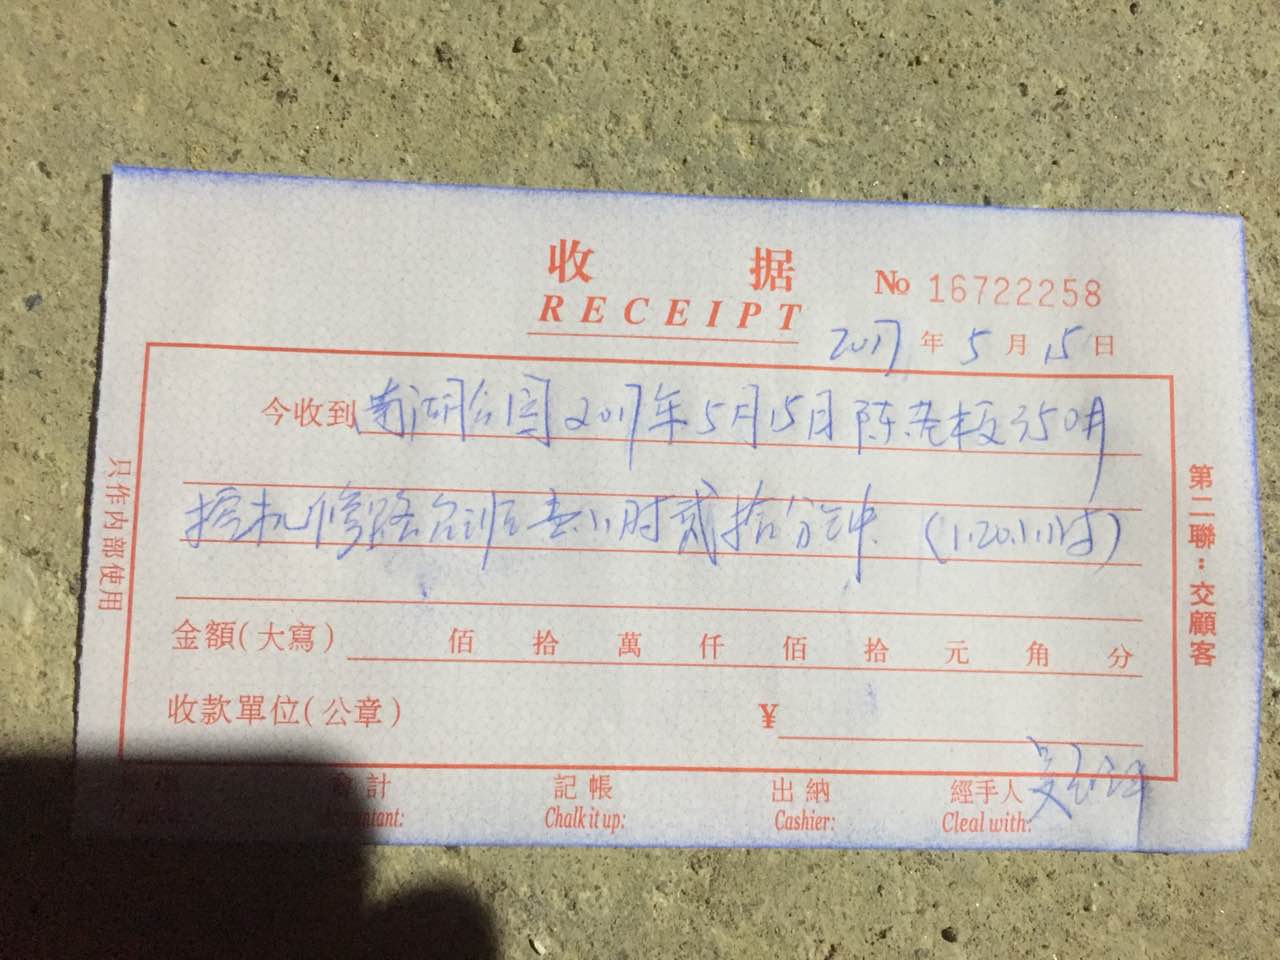 收据
RECEIPT
№ 16722258
2017年5月15日
今收到南湖公园2017年5月15日陈老板350
挖机修路台班壹小时贰拾分钟.(1:20小时)
金額(大寫) 佰 拾 萬 仟 佰 拾 元 角 分
收款單位(公章) ¥
會計 記帳 出納 經手人
Chalk it up: Cashier: Cleal with:
只作内部使用
第二聯:交顧客